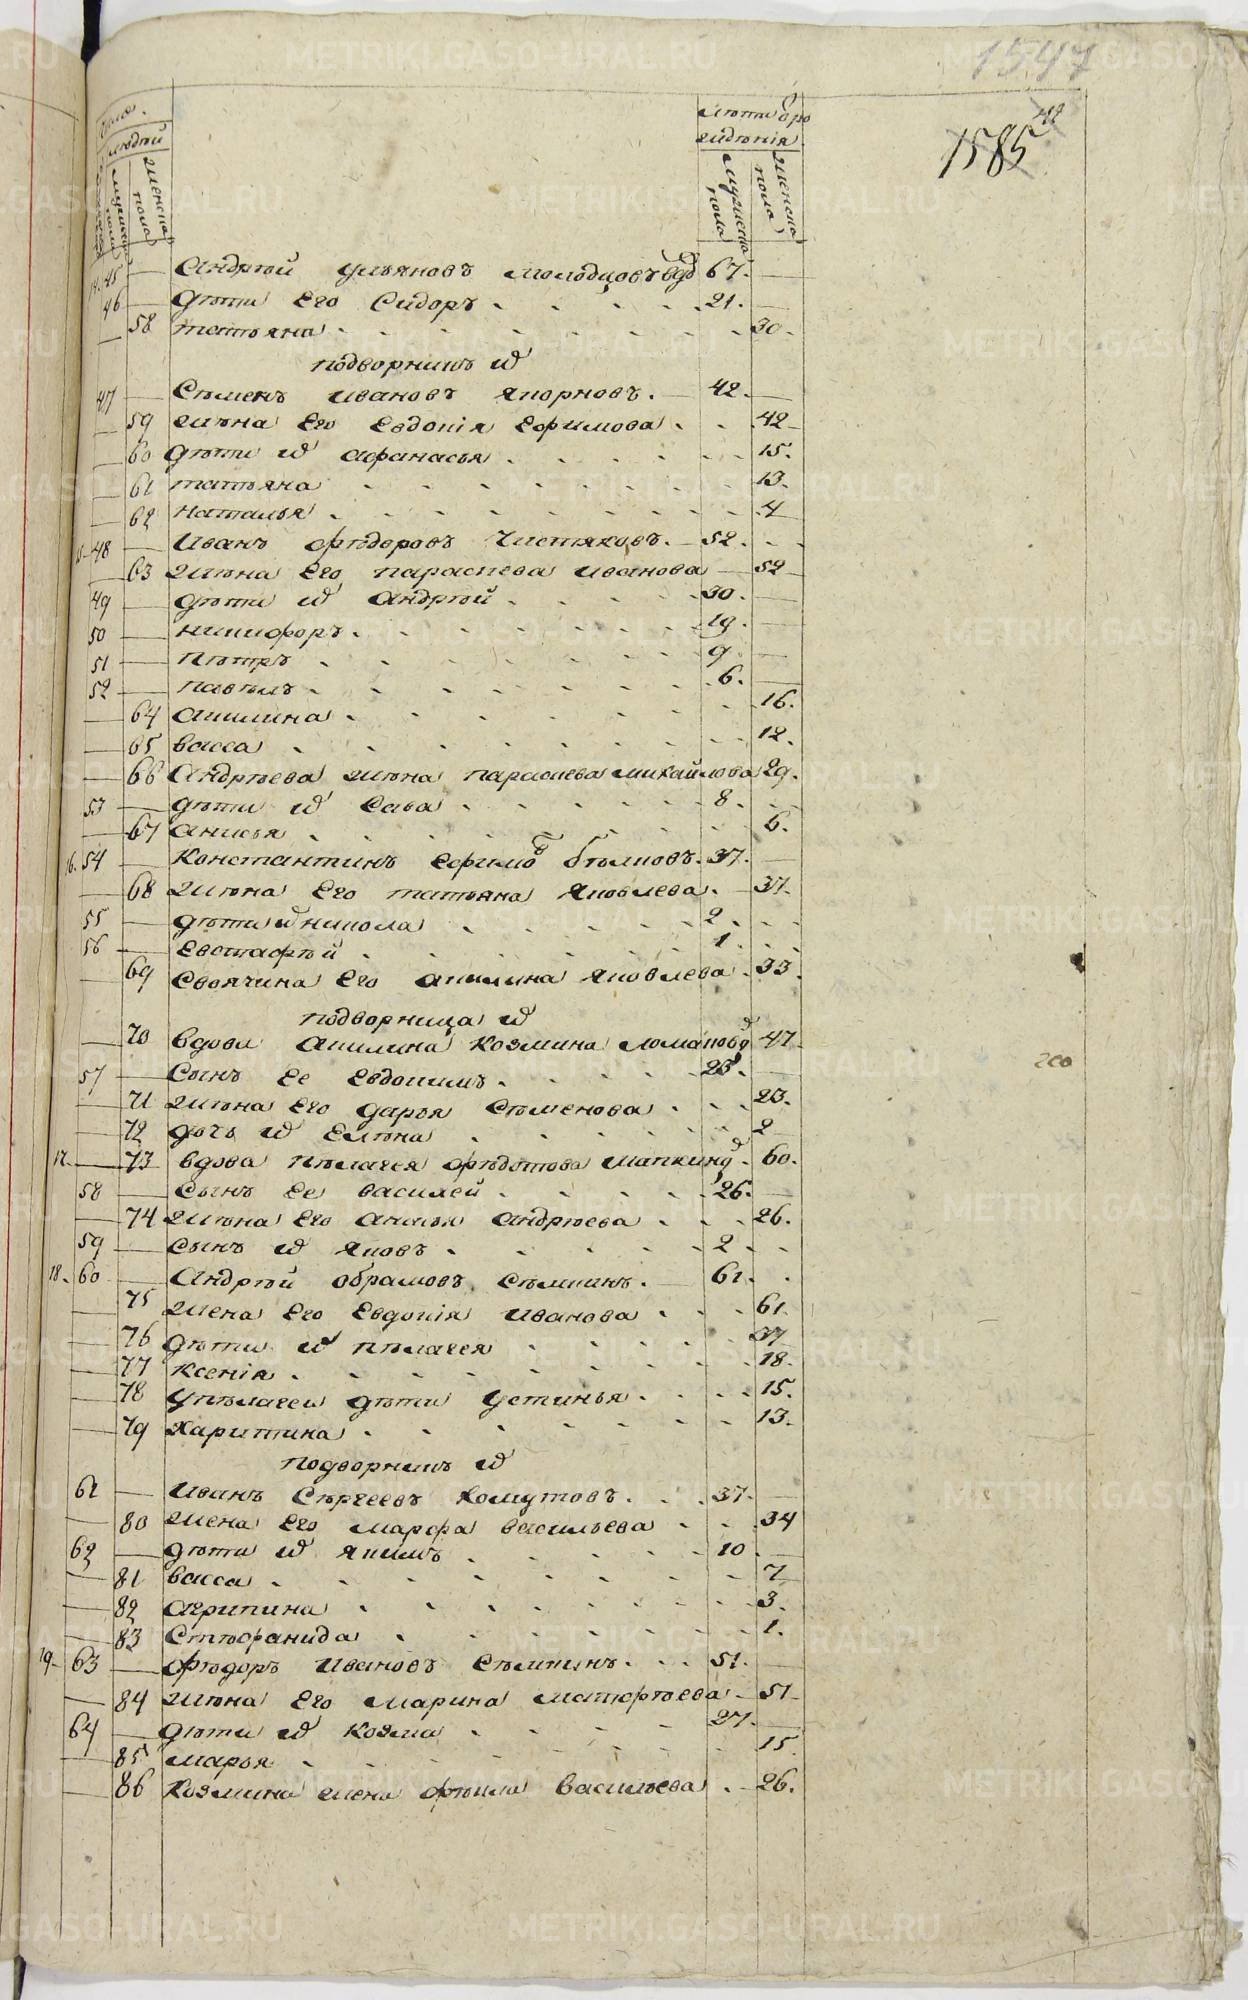 1547
1585
Число
людей
мужеска пола
женска пола
лѣта отро
ждѣнія
мужеска пола
женска пола
14. 45 — Андрѣй ульяновъ молодцовъ вдов 67. —
46 — дѣти Его Сидоръ 21. —
— 58 татьяна 30.
подворникъ ихъ
47 — Сѣменъ ивановъ япорновъ. 42. —
— 59 жѣна Его Евдокія Ефимова 42
— 60 дѣти ихъ афанасья 15.
— 61 татьяна 13.
— 62 наталья 4
15. 48 — Иванъ Фѣдоровъ Чистяковъ. 52.
— 63 Жѣна Его параскева иванова 52
49 — дѣти ихъ Андрѣй 30. —
50 — никифоръ. 19. —
51 — пѣтръ 9 —
52 — павѣлъ 6. —
— 64 акилина 16.
— 65 васса 12.
— 66 Андрѣева жѣна параскева михайлова 29.
53 — дѣти ихъ Сава 8.
— 67 анисья 6.
16. 54 — Константинъ Ефимовъ бѣлковъ. 37. —
— 68 Жѣна Его татьяна Яковлева. 37.
55 — дѣти ихъ никола 2
56 — Евстафѣй 1.
— 69 Своячина Его акилина яковлева 33.
подворница ихъ
— 70 вдова Акилина козмина 47
57 — Сынъ Ее Евдокимъ 25. —
— 71 Жѣна Его дарья Сѣменова 23.
— 72 дочь ихъ Елѣна 2
17. — 73 вдова пѣлагея Фѣдотова 60.
58 — Сынъ Ее василей 26. —
— 74 Жѣна Его анисья андрѣева 26.
59 — Сынъ ихъ яковъ 2
18. 60 — Андрѣй обрамовъ Сѣмкинъ. 61.
— 75 Жена Его Евдокія Иванова 61.
— 76 дѣти ихъ пѣлагея 37
— 77 Ксенія 18.
— 78 упѣлагеи дѣти устинья 15.
— 79 харитина 13.
Подворникъ ихъ
61 — Иванъ Сѣргеевъ хомутовъ. 37. —
— 80 Жена Его марфа васильева 34
62 — дѣти ихъ якимъ 10 —
— 81 васса 7
— 82 агрипина 3.
— 83 Стѣфанида 1.
19. 63 — Фѣдоръ Ивановъ Сѣмкинъ. 51. —
— 84 Жѣна Его Марина матфѣева 51
64 — дѣти ихъ козма 27. —
— 85 марья 15
— 86 Козмина жена фѣкла васильева 26.